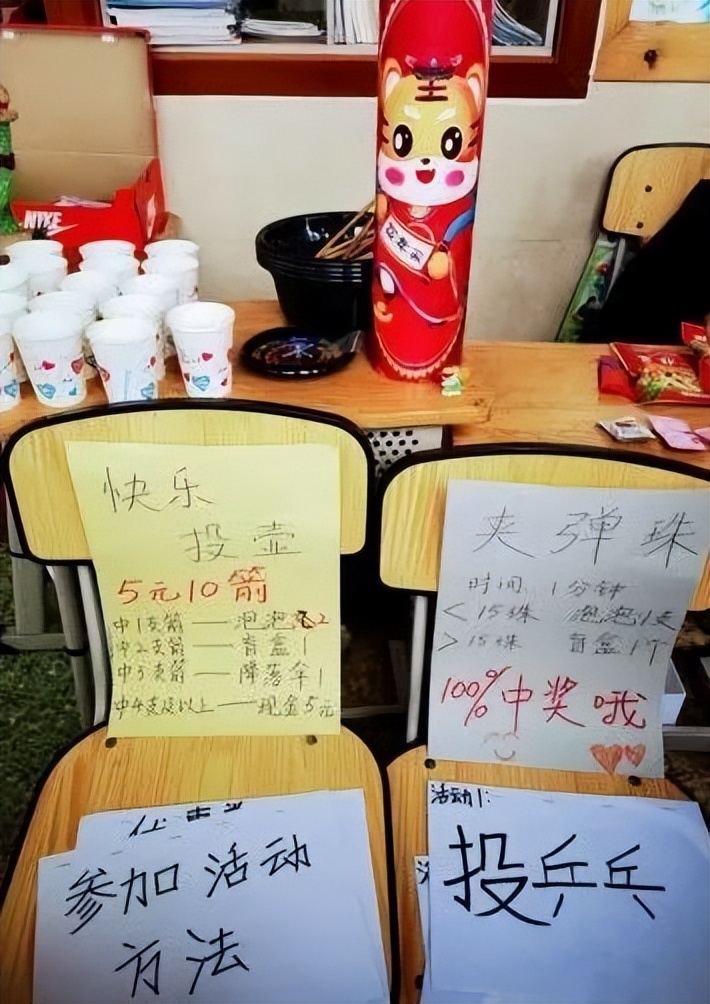 NIKE
王
快乐
投壶
5元10箭
中1支箭——泡泡
中2支箭——盲盒1
中3支箭——降落伞1
中4支及以上——现金5元
夹弹珠
时间 1分钟
<15珠 泡泡1支
>15珠 盲盒1个
100%中奖哦
参加活动
方法
活动1:
投乒乓